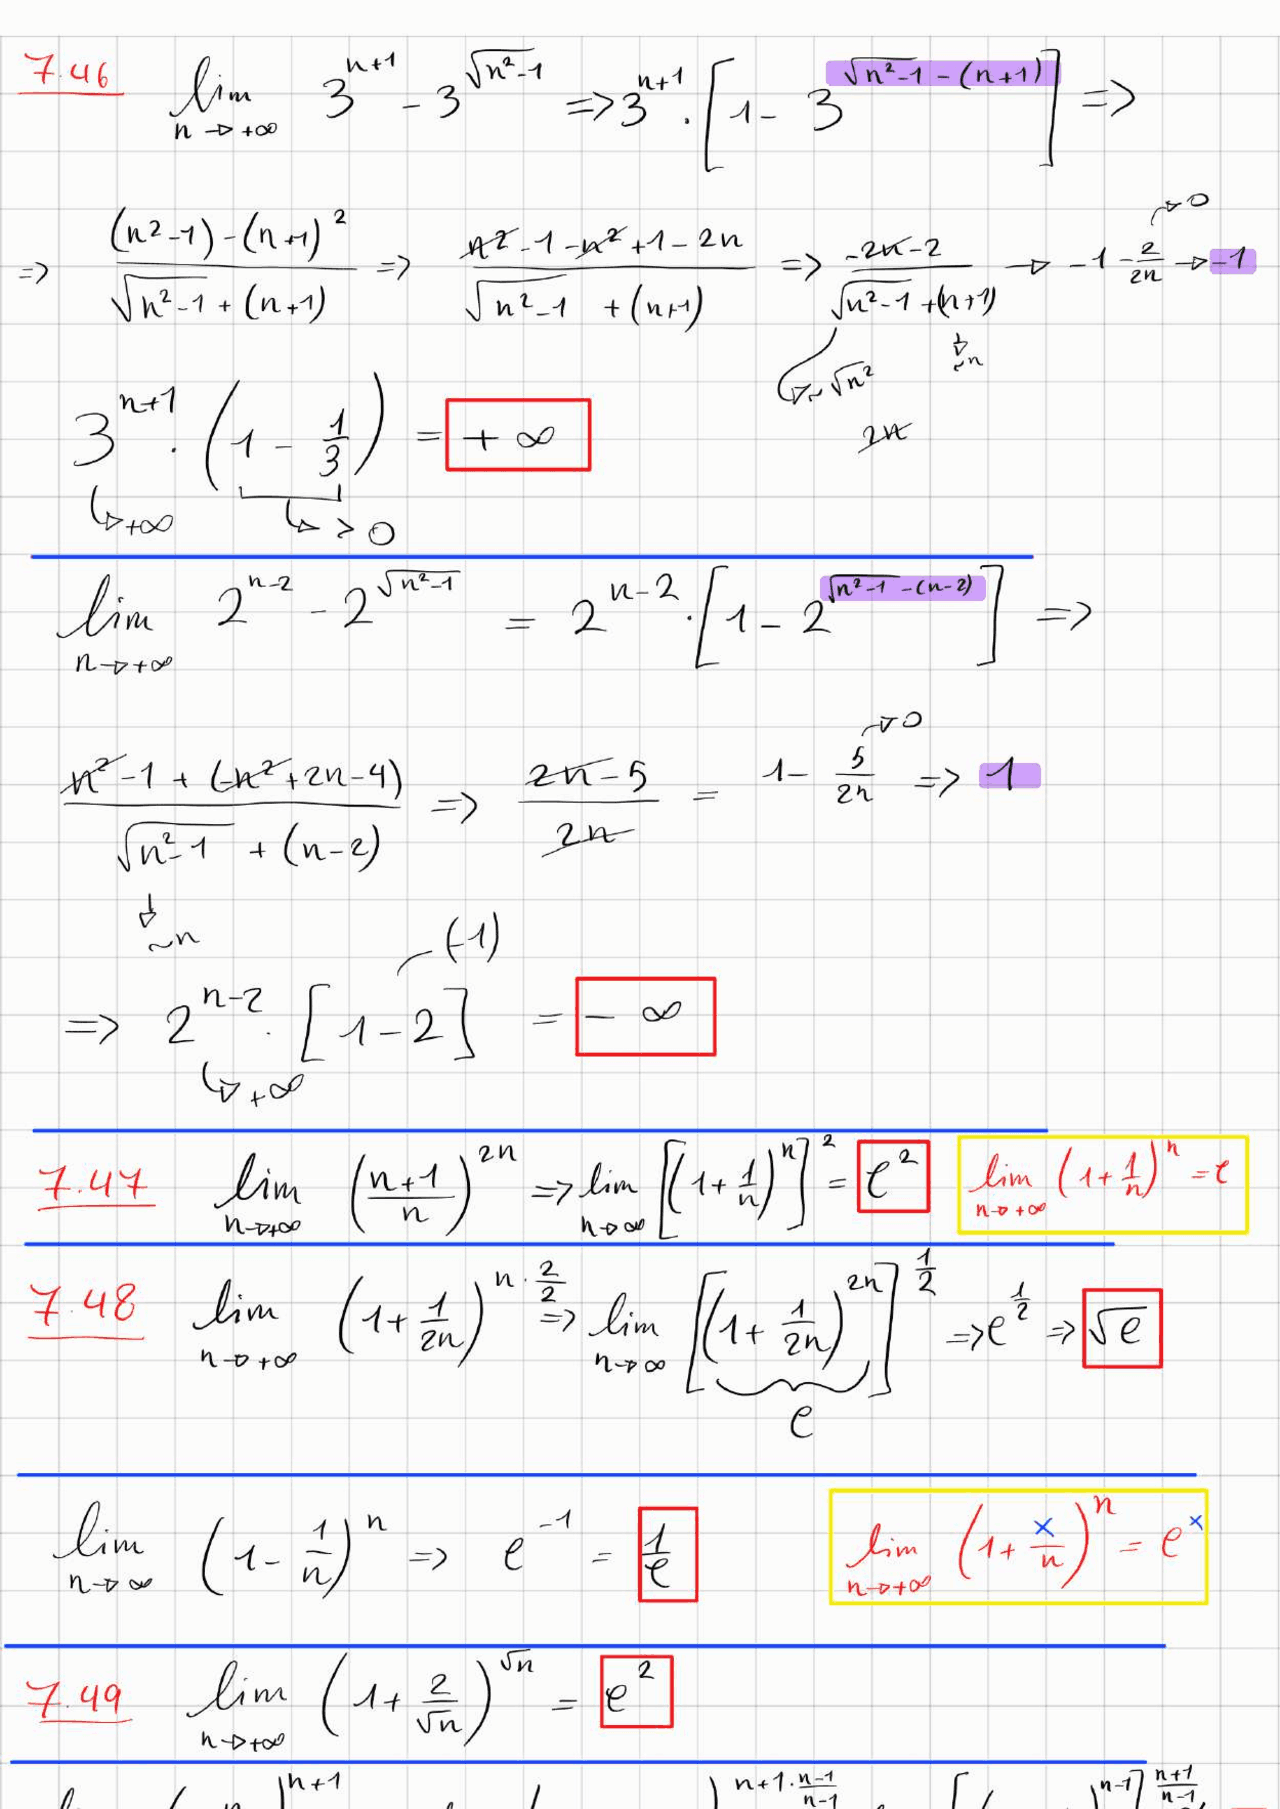 7.46 lim n→+∞ 3^(n+1) - 3^√(n²-1) => 3^(n+1) · [1 - 3^(√(n²-1) - (n+1))] =>
=> ((n²-1) - (n+1)²)/(√(n²-1) + (n+1)) => (n²-1-n²+1-2n)/(√(n²-1) + (n+1)) => (-2n-2)/(√(n²-1) + (n+1)) → -1 - 2/2n → -1
→0
~√n² ~n
2n
3^(n+1) · (1 - 1/3) = +∞
→+∞ → > 0
lim n→+∞ 2^(n-2) - 2^√(n²-1) = 2^(n-2) · [1 - 2^(√(n²-1) - (n-2))] =>
→0
(n²-1 + (-n²+2n-4))/(√(n²-1) + (n-2)) => (2n-5)/2n = 1 - 5/2n => 1
~n
(-1)
=> 2^(n-2) · [1-2] = -∞
→+∞
7.47 lim n→+∞ ((n+1)/n)^(2n) => lim n→∞ [(1+1/n)^n]² = e² lim n→+∞ (1+1/n)^n = e
7.48 lim n→+∞ (1+1/2n)^(n·2/2) => lim n→∞ [(1+1/2n)^(2n)]^(1/2) => e^(1/2) => √e
e
lim n→∞ (1-1/n)^n => e^(-1) = 1/e lim n→+∞ (1+x/n)^n = e^x
7.49 lim n→+∞ (1+2/√n)^√n = e²
n+1 n+1·(n-1)/(n-1) n-1 (n+1)/(n-1)